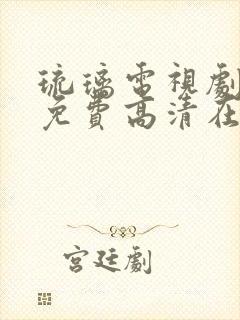 琉璃電視劇
免費高清在
宮廷劇